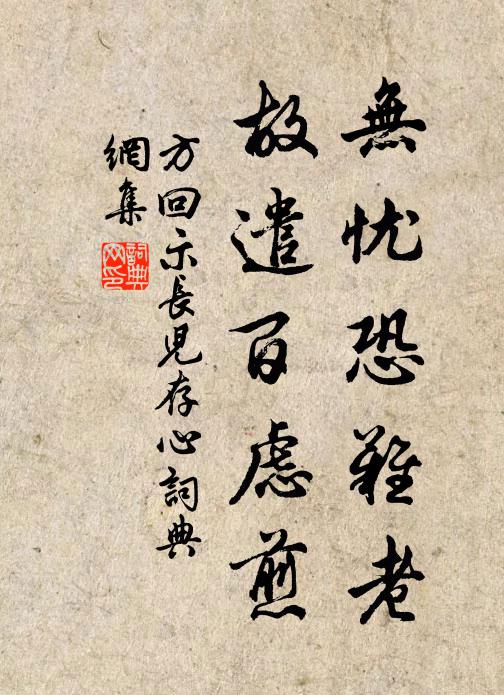 無忧恐難老
故遣百慮煎
方回示長児存心詞典
網集
詞典
网印